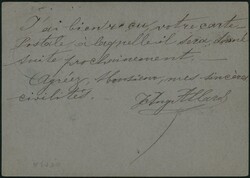 J'ai bien reçu, votre carte
Postale, à laquelle il sera donné
suite prochainement.
Agréez Monsieur, mes sincères
civilités.